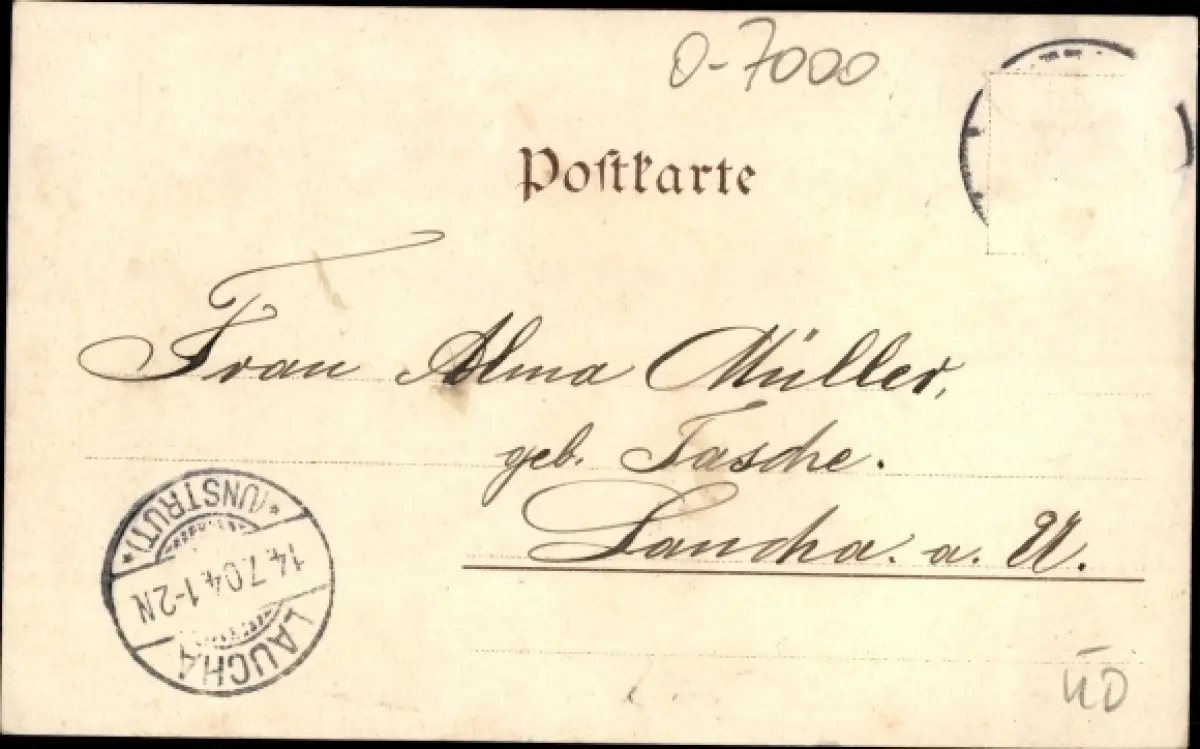 O-7000
Postkarte
Frau Alma Müller,
geb. Tasche.
Laucha. a. U.
*(UNSTRUT)*
14.7.04.1-2N
LAUCHA